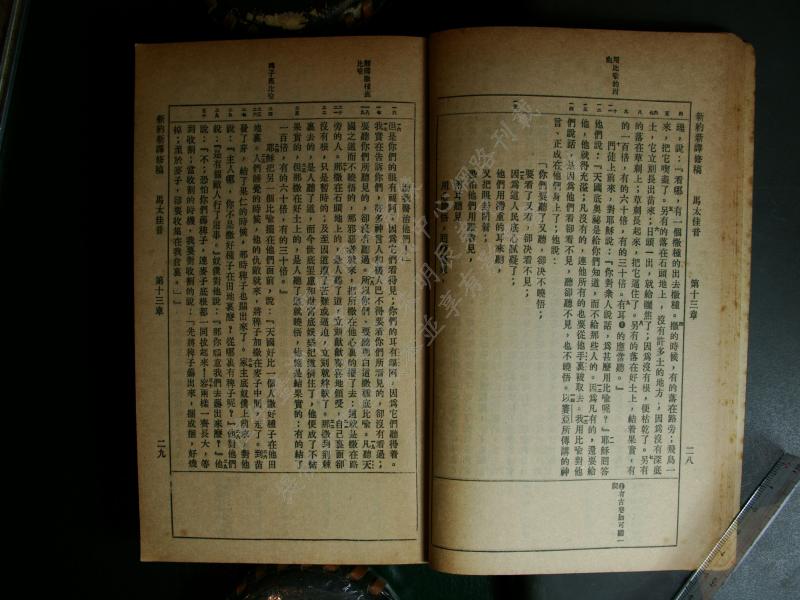 新約新譯修稿　馬太佳音　第十三章　二八
用比喻的因由
瑰，說：「看哪，有一個撒種的出去撒種。撒的時候，有的落在路旁；飛鳥一
來，把它喫盡了。另有的落在石頭地上，沒有許多土的地方；因爲沒有深底
土，它立刻長出苗來；日頭一出，就給曬焦了；因爲沒有根，便枯乾了。另有
的落在草刺上；草刺長起來，把它逼住了。另有的落在好土上，結着果實，有
的一百倍，有的六十倍，有的三十倍。有耳的應當聽。」
門徒上前來，對耶穌說：「你對衆人說話，爲甚麼用比喻呢？」耶穌回答
他們說：「天國底奧祕是給你們知道，而不給那些人的。因爲凡有的，還要給
他，他就得充溢；凡沒有的，連他所有的也要從他手裏被取去。我用比喻對他
們說話，是因爲他們看卻看不見，聽卻聽不見，也不曉悟。以賽亞所傳講的神
言、正成在他們身上了；他說：
「你們要聽了又聽，卻決不曉悟；
要看了又看，卻決看不見；
因爲這人民底心膩了；
他們用滯重的耳來聽，
又把眼封閉着；
恐怕他們用眼看見，
用耳聽見，
有古卷加可聽一
但是你們的眼有福阿，因爲它們看得見；你們的耳有福阿，因爲它們聽得着。
我實在告訴你們，許多神言人和義人巴不得要看你們所看見的，卻沒有看過；
要聽你們所聽見的，卻沒有聽過。所以你們、要聽明白這撒種底比喻。凡聽天
國之道而不曉悟的，那邪惡者就來，把所撒在他心裏的攫了去；這就是撒在路
旁的人。那撒在石頭地上的，是人聽了道，立刻歡歡喜喜地領受，自己裏面卻
沒有根，只是暫時的；及至因道遭了苦難或逼迫，立刻就絆跌了。那撒到荆棘
裏去的，是人聽了道，而今世底思慮和財富底娛惑把道擠住了，他便成了不結
果實的。但那撒在好土上的，是人聽了道就曉悟，他總是結果實的：有的結了
一百倍，有的六十倍，有的三十倍。」
耶穌把另一個比喻擺在他們面前，說：「天國好比一個人撒好種子在他田
地裏。人們睡覺的時候，他的仇敵就來，將稗子加撒在麥子中間，走了。到苗
發了芽，結了果仁的時候，那時稗子也顯出來了。家主底奴僕上前來，對他
說：『主人哪，你不是撒好種子在田地裏麼？從哪裏有稗子呢？』他對他們
說：『是有個敵人行了這事。』奴僕對他說：『那你願意我們去薅出來麼？』他
說：『不；恐怕你們薅稗子，連麥子底根都一同拔起來！容兩樣一齊長大，等
到收割；當收割的時機，我要對收割的說：「先將稗子薅出來，捆成捆，好燒
掉；至於麥子，卻要收集在我倉裏。」』
解釋撒種底比喻
稗子底比喻
新約新譯修稿　馬太佳音　第十三章　二九